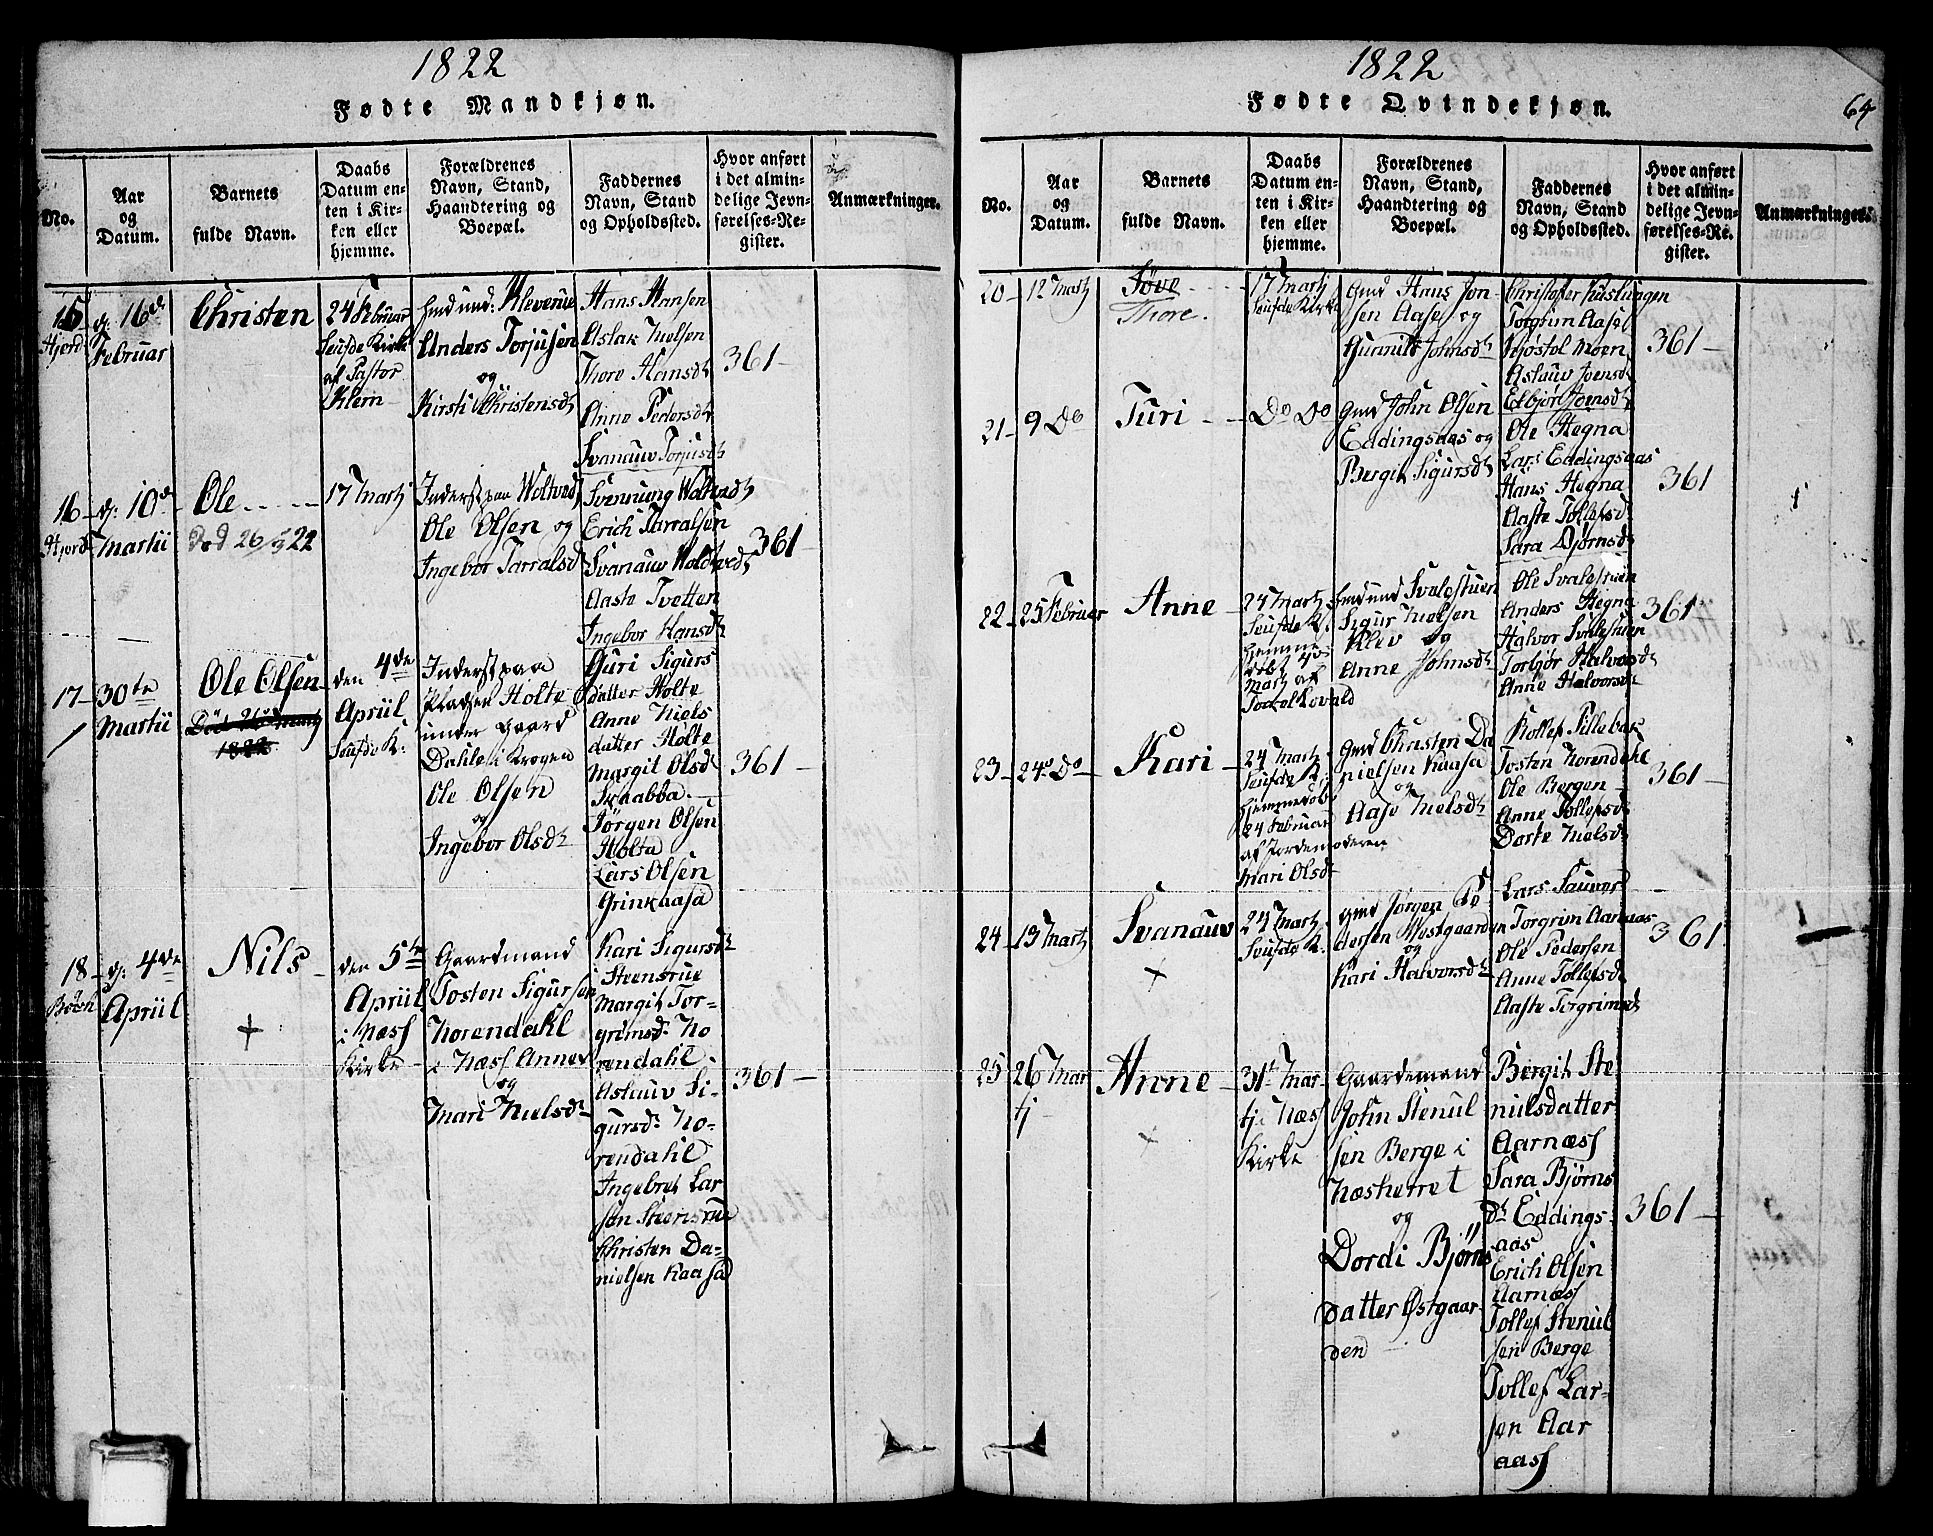 1822
Fødte Mandkjøn.
No.
Aar
og
Datum.
Barnets
fulde Navn.
Daabs
Datum en-
ten i Kir-
ken eller
hjemme.
Forældrenes
Navn, Stand,
Haandtering og
Boepæl.
Faddernes
Navn, Stand
og Opholdssted.
Hvor anført
i det almin-
delige Jevn-
førelses-Re-
gister.
Anmærkninger.
15
Hjerd
d: 16de
Februar
Christen
24 Februar
Seufde Kirke
af Pastor
Klem
Gmd und: Kleverue
Anders Torjusen
og
Kirsti Christensdt
Hans Hansen
Aslak Nielsen
Thore Hansdt
Anne Pedersdt
Svanauv Torjusdt
361
16
Hjerd
d: 10de
Martii
Ole
død 26/5 22
17 Martj
Inderst paa Woltved
Ole Olsen og
Ingebor Tarralsd
Svennung Woltvedt
Erich Tarralsen
Svanauv Woldtvedt
Aaste Tvetten
Ingebor Hansdt
361
17
30te
Martii
Ole Olsen
1822
den 4de
Apriil
Seufde K:
Inderst paa
Pladsen Holte
under Gaard
Dahle i Krogen
Ole Olsen
og
Ingebor Olsdt
Guri Sigurs
datter Holte
Anne Niels
datter Holte
Margit Olsdt
Skaabba
Jørgen Olsen
Holta
Lars Olsen
Grinkaasa
361
18
d: 4de
Apriil
Nils
+
den 5te
Apriil
i Næss
Kirke
Gaardmand
Tosten Sigursen
Norendahl
i Næss Annex
og
Mari Nielsdt
Kari Sigursdt
Steensrue
Margit Tor-
grimsd: No
rendahl
Aslauv Si
gursd: No-
rendahl
Ingebret Lar
sen Steensrue
Christen Da-
nielsen Kaasa
361
1822
64
Fødte Qvindekjøn.
No.
Aar
og
Datum.
Barnets
fulde Navn.
Daabs
Datum en-
ten i Kir-
ken eller
hjemme.
Forældrenes
Navn, Stand,
Haandtering og
Boepæl.
Faddernes
Navn, Stand
og Opholdssted.
Hvor anført
i det almin-
delige Jevn-
førelses-Re-
gister.
Anmærkninger.
20
12 Martj
Tøve
Thore.
17 Martj
Seufde Kirke
Gmd Hans Jon-
sen Aase og
Gunnild Johnsdt
Christofer
Torgrim Aase
Kjøstol Moen
Aslauv Joensdt
Edbjør Joensdt
361
21
9 Do
Turi
Do Do
Gmd John Olsen
Eddingsaas og
Bergit Sigursdt
Ole Hegna
Lars Eddingsaas
Hans Hegna
Aaste Tollefsdt
Sara Bjørnsdt
361
22
25 Februar
Anne
24 Martj
Seufde K.
hjemme
døbt 4de
Martj af
Gmd und Svalestuen
Sigur Nielsen
Klev og
Anne Johnsdt
Ole Svalestuen
Anders Hegna
Halvor Svalestuen
Torbjør Halvorsdt
Anne Halvorsdt
361
23
24 Do
Kari
24 Martj
Seufde K.
hjemmedøbt
24 Februar
af Jordemoderen
Mari Olsdt
Gmd Christen Da
nielsen Kaasa
og
Aase Nielsdt
Kollef Pillebek
Tosten Norendahl
Ole Bergen
Anne Tollefsdt
Dorte Nielsdt
361
24
13 Martj
Svanauv
+
24 Martj
Seufde K.
Gmd Jørgen Pe-
dersen Østgaarden
og
Kari Halvorsdt
Lars Sauver
Torgrim Aarnæs
Ole Pedersen
Anne Tollefsdt
Aaste Torgrimsdt
361
25
26 Mar
tj
Anne
+
31te Mar
tj i Næss
Kirke
Gaardemand
John Stenul
sen Berge i
Næsherret
og
Dordi Bjørns
datter Østgaar-
den
Bergit Ste
nulsdatter
Aarnæss
Sara Bjørns
dt Eddings-
aas
Erich Olsen
Aarnæss
Tollef Stenul
sen Berge
Tollef Lar-
sen Aar
aass
361